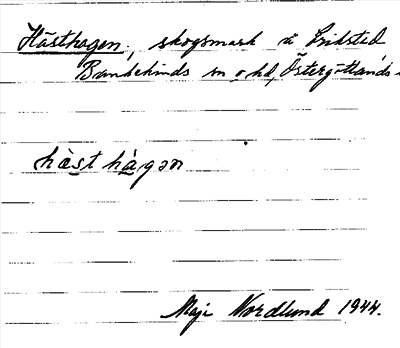 Hästhagen, skogsmark å Eriksted
Bankekinds sn o hd, Östergötlands
hàst hàgən
Maj Nordlund 1944.